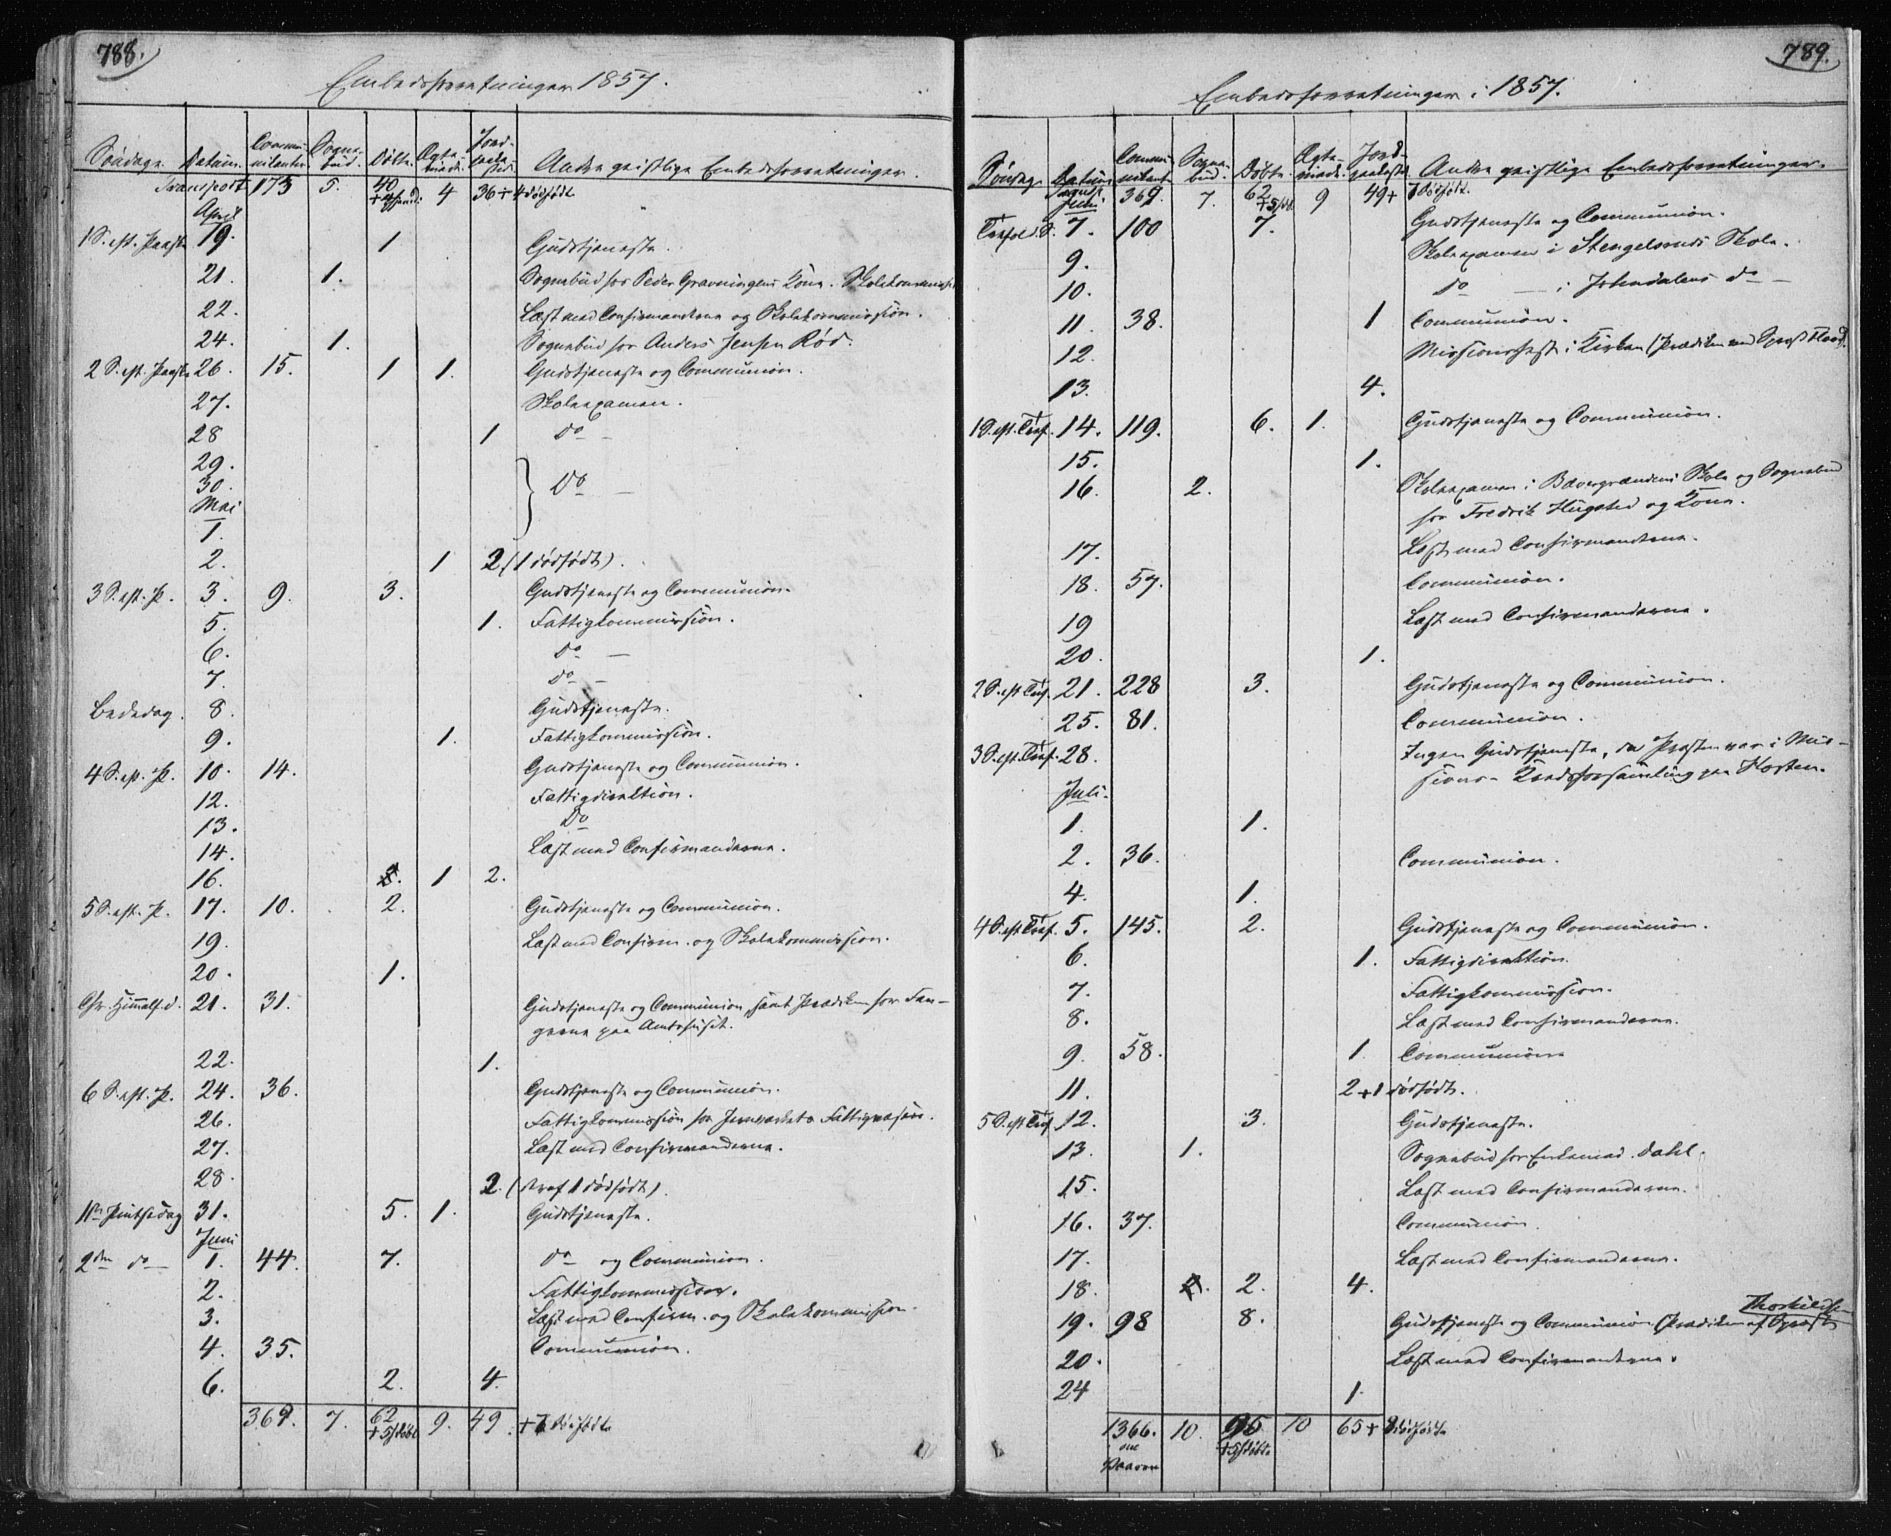 788.
Embedsforretninger 1857.
Søndage. Datum. Commu-nikanter. Sogne-bud. Døbte. Ægte-viede. Jord-fæste-der. Andre geistlige Embedsforretninger.
Transport 173 5. 40 4 36 + 4 dødfødt
April
1 S. eft. Paaske 19. 1 Gudstjeneste.
21. 1. Sognebud for Peder Gravningens Kone. Skolekommission
22. Læst med Confirmanderne og Skolekommission.
24. 1. Sognebud for Anders Jensen Rød.
2 S. eft. Paaske 26. 15. 1 1. Gudstjeneste og Communion.
27. Skoleexamen.
28 1 do
29.
30. do
Mai
1.
2. 1 2 (1 dødfødt).
3 S. eft. P. 3. 9. 3. Gudstjeneste og Communion.
5. 1. Fattigkommission.
6. do
7. do
Bededag. 8. Gudstjeneste.
9. 1. Fattigkommission.
4 S. eft. P. 10. 14. Gudstjeneste og Communion.
12. Fattigdirektion.
13. do
14. Læst med Confirmanderne.
16. 1 2.
5 S. eft. P. 17. 10. 2. Gudstjeneste og Communion.
19. Læst med Confirm. og Skolekommission.
20. 1.
Chr. Himmelf. d. 21. 31. Gudstjeneste og Communion, samt Prædiken for Fan-
gerne paa Amtshuset.
22. 1.
6 S. eft. P. 24. 36. Gudstjeneste og Communion.
26. Fattigkommission for Jernværkets Fattigvæsen.
27. Læst med Confirmanderne.
28. 2. (deraf 1 dødfødt).
1ste Pintsedag 31. 5. 1. Gudstjeneste.
Juni
2den do 1. 44. 7. do og Communion.
2. Fattigkommission.
3. Læst med Confirm. og Skolekommission.
4. 35. Communion.
6. 2. 4.
369. 7. 62 + 5 hjdøbt 9. 49. + 7 dødfødte
789.
Embedsforretninger i 1857.
Søndage Datum Commu-nikant. Sogne-bud. Døbte. Ægte-viede. Jord-fæstede. Andre geistlige Embedsforretninger.
Transp. 369. 7. 62 + 5 hjdbt 9 49 + 7 dødfødt.
Juni
Trefold. S. 7. 100 7. Gudstjeneste og Communion.
9. Skoleexamen i Stengelsruds Skole.
10. do — i Johndalens do —
11. 38. 1 Communion.
12. Missionsfest i Kirken (Prædiken ved Sgpr. Flood).
13. 4.
1 S. eft. Tref. 14. 119. 6. 1. Gudstjeneste og Communion.
15. 1.
16. 2. Skoleexamen i Bævergrændens Skole og Sognebud
for Fredrik Hugsted og Kone.
17. Læst med Confirmanderne.
18. 57. Communion.
19 Læst med Confirmanderne.
20. 1.
2 S. eft. Tref. 21. 228 3. Gudstjeneste og Communion.
25. 81. Communion.
3 S. eft. Tref. 28. Ingen Gudstjeneste, da Præsten var i Mis-
sions-Kredsforsamling paa Horten.
Juli.
1. 1.
2. 36. Communion.
4. 1.
4 S. eft. Tref. 5. 145. 2. Gudstjeneste og Communion.
6. 1. Fattigdirektion.
7. Fattigkommission.
8. Læst med Confirmanderne.
9. 58. 1. Communion
11. 2 + 1 dødfødt.
5 S. eft. Tref. 12. 3. Gudstjeneste.
13. 1. Sognebud for Enkemad. Dahl.
15. Læst med Confirmanderne.
16. 37. Communion
17. Læst med Confirmanderne.
18. 2. 4.
Thorkildsen
19. 98 8. Gudstjeneste og Communion (Prædiken af Sgpræst
20. Læst med Confirmanderne.
24 1.
1366. 10. 95 + 5 hjdøbte 10 65 + 8 dødfødte
om
Vaaren